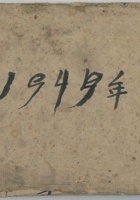 1949年